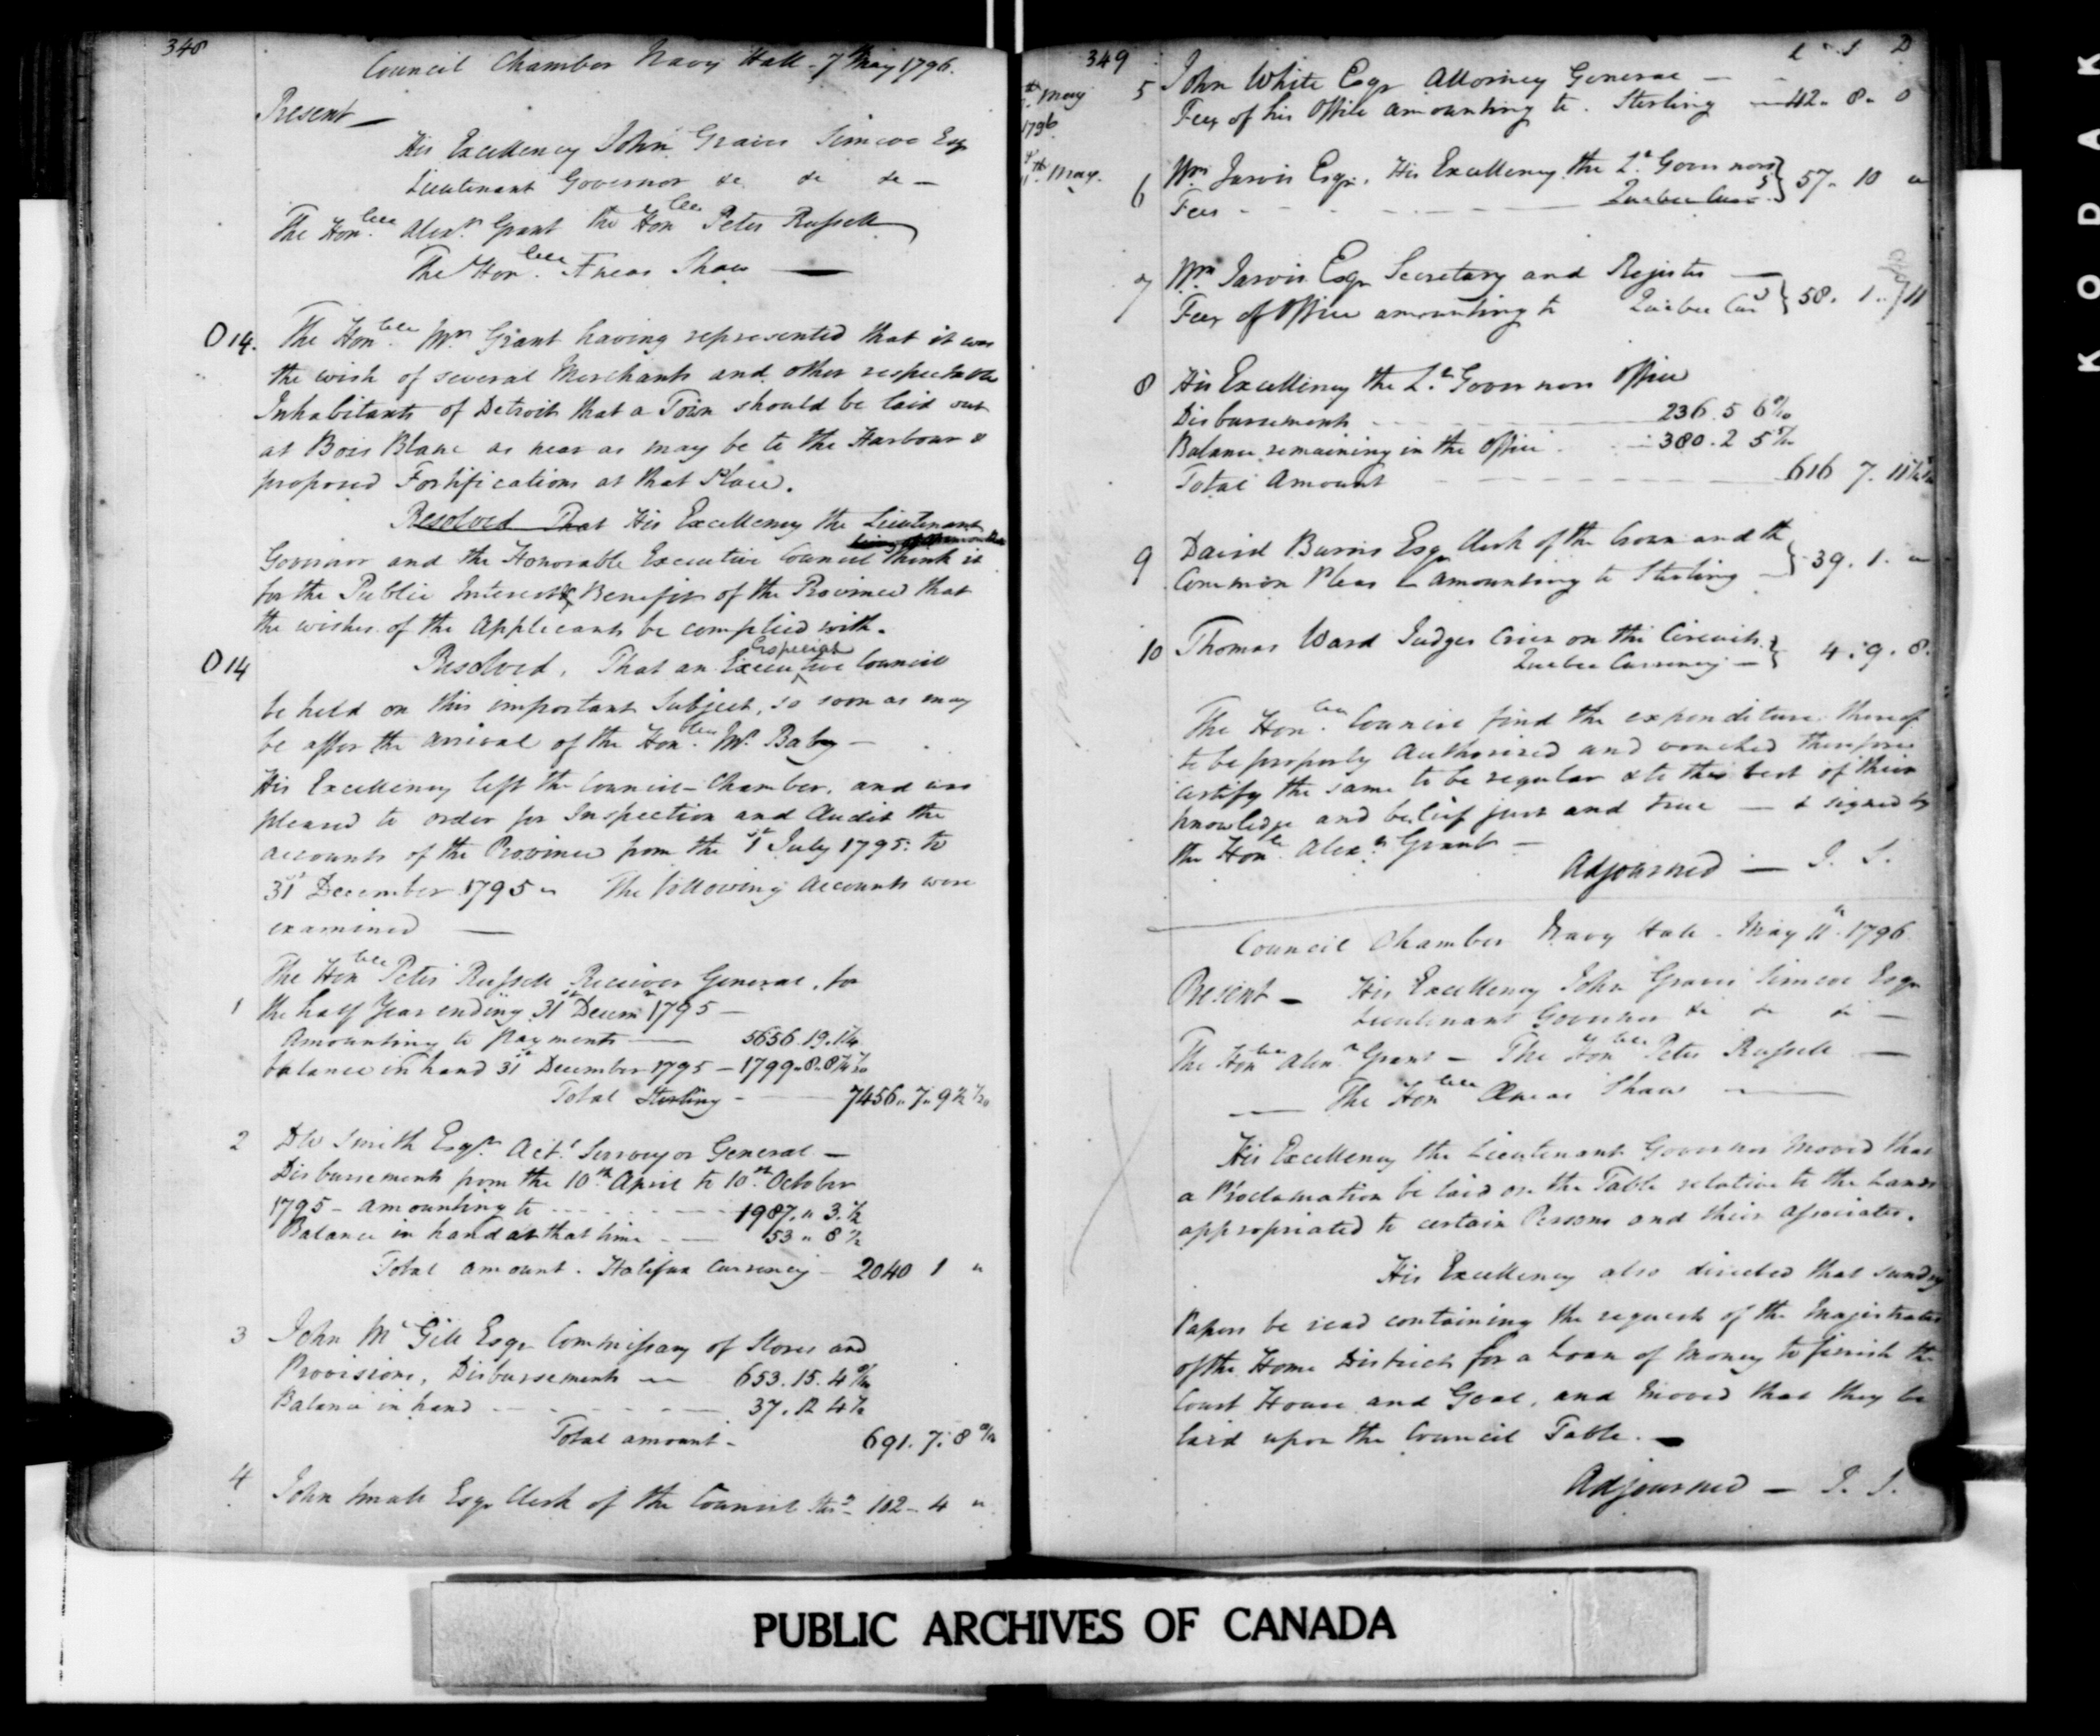 348
Council Chamber Navy Hall. 7th May 1796.
Present —
His Excellency John Graves Simcoe Esqr
Lieutenant Governor &c &c &c —
The Honble Alexr Grant The Honble Peter Russell
The Honble Æneas Shaw —
O 14. The Honble Mr Grant having represented that it was
the wish of several Merchants and other respectable
Inhabitants of Detroit that a Town should be laid out
at Bois Blanc as near as may be to the Harbour &
proposed Fortifications at that Place.
Resolved That His Excellency the Lieutenant
Governor and the Honorable Executive Council think it
for the Public Interest & Benefit of the Province that
the wishes of the Applicants be complied with.
O 14 Resolved, That an Executive Especial Council
be held on this important Subject, so soon as may
be after the arrival of the Honble Mr Baby —
His Excellency left the Council-Chamber, and was
pleased to order for Inspection and Audit the
accounts of the Province from the 1st July 1795. to
31st December 1795 " The following Accounts were
examined —
The Honble Peter Russell Receiver General, for
1 the half Year ending 31st Decemr 1795 —
Amounting to Payments — 5656.19.1¼
balance in hand 31st December 1795 — 1799.8.8
Total Sterling - 7456.7.9½
2 DW Smith Esqr Actg Surveyor General —
Disbursements from the 10th April to 10th October
1795 - amounting to 1987. " 3.½
Balance in hand at that time 53 " 8½
Total amount. Halifax Currency - 2040 1 "
3 John McGill Esqr Commissary of Stores and
Provisions, Disbursements — 653.15.4
Balance in hand 37.12 4
Total amount - 691.7.8
4 John Small Esqr Clerk of the Council Stg 102 - 4 "
349
L S D
th May
1796
11th May.
5 John White Esqr Attorney General —
Fees of his Office amounting to. Sterling — 42. 8. 0
6 Wm Jarvis Esqr. His Excellency the Lt Governors
Fees Quebec Curr } 57. 10 "
7 Wm Jarvis Esqr Secretary and Register —
Fees of Office amounting to Quebec Cury } 58. 1. 11
8 His Excellency the Lt Governors Office
Disbursements 236.5 6
Balance remaining in the Office 380.2 5
Total Amount 616 7. 11
9 David Burns Esqr Clerk of the Crown and the
Common Pleas amounting to Sterling — } 39. 1. "
10 Thomas Ward Judges Crier on the Circuits
Quebec Currency — } 4. 9. 8.
The Honble Council find the expenditure thereof
to be properly Authorized and vouched therefore
certify the same to be regular & to the best of their
knowledge and belief just and true — & signed by
the Honble Alexr Grant —
Adjourned — J. S.
Council Chamber Navy Hall. May 11th 1796
Present — His Excellency John Graves Simcoe Esqr
Lieutenant Governor &c &c &c —
The Honble Alexr Grant — The Honble Peter Russell —
— The Honble Æneas Shaw —
His Excellency the Lieutenant Governor moved that
a Proclamation be laid on the Table relative to the Lands
appropriated to certain Persons and their Associates.
His Excellency also directed that sundry
Papers be read containing the request of the Magistrates
of the Home District for a Loan of Money to finish the
Court House and Goal, and moved that they be
laid upon the Council Table. —
Adjourned — J. S.
PUBLIC ARCHIVES OF CANADA
KODAK